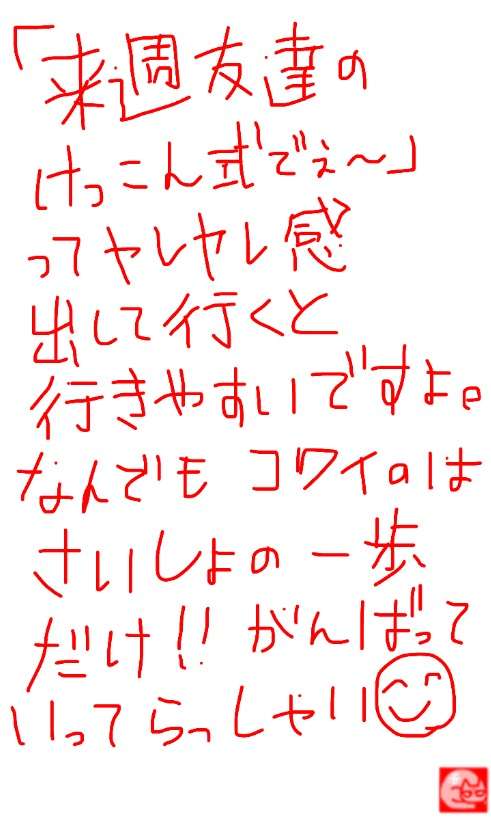 「来週友達の
けっこん式でぇ〜」
ってヤレヤレ感
出して行くと
行きやすいですよ。
なんでも コワイのは
さいしょの一歩
だけ!! がんばって
いってらっしゃい